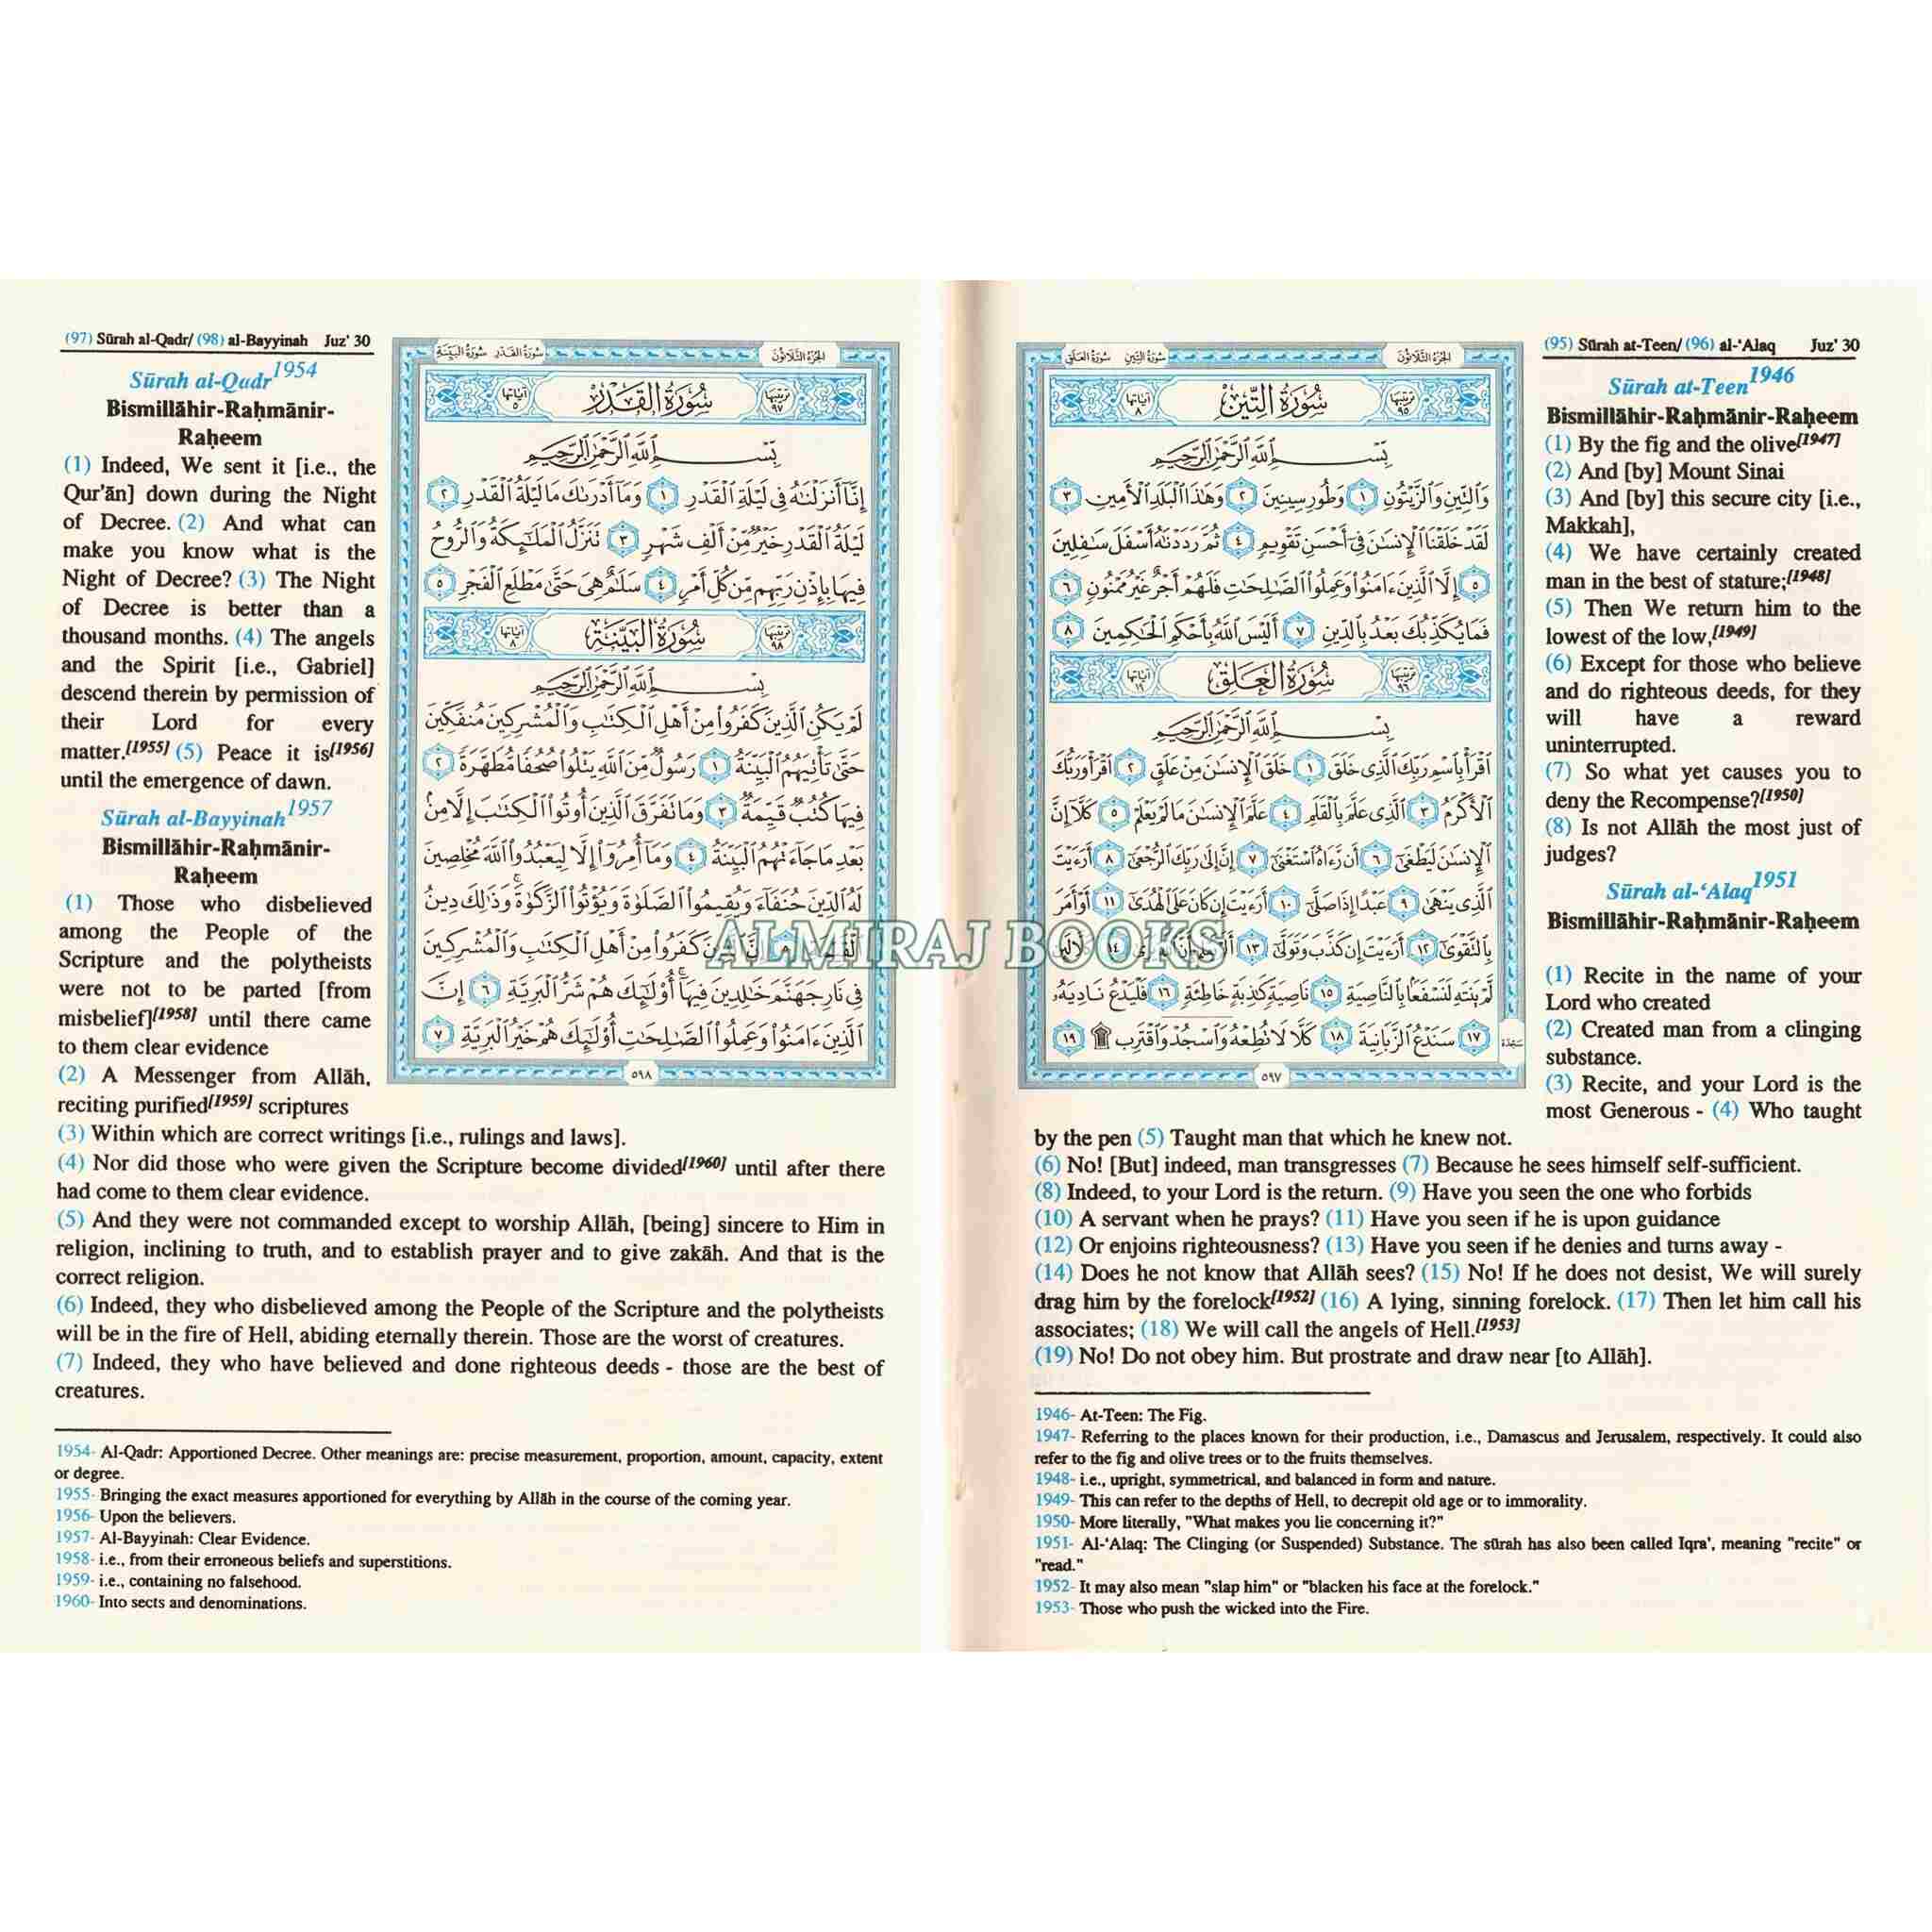 (95) Sūrah at-Teen/ (96) al-‘Alaq Juz' 30
الجزء الثلاثون سورة التين سورة العلق
ترتيبها ٩٥ سُورَةُ التِّينِ آياتها ٨
بِسْمِ ٱللَّهِ ٱلرَّحْمَٰنِ ٱلرَّحِيمِ
وَٱلتِّينِ وَٱلزَّيْتُونِ ١ وَطُورِ سِينِينَ ٢ وَهَٰذَا ٱلْبَلَدِ ٱلْأَمِينِ ٣
لَقَدْ خَلَقْنَا ٱلْإِنسَٰنَ فِىٓ أَحْسَنِ تَقْوِيمٍ ٤ ثُمَّ رَدَدْنَٰهُ أَسْفَلَ سَٰفِلِينَ
٥ إِلَّا ٱلَّذِينَ ءَامَنُوا۟ وَعَمِلُوا۟ ٱلصَّٰلِحَٰتِ فَلَهُمْ أَجْرٌ غَيْرُ مَمْنُونٍ ٦
فَمَا يُكَذِّبُكَ بَعْدُ بِٱلدِّينِ ٧ أَلَيْسَ ٱللَّهُ بِأَحْكَمِ ٱلْحَٰكِمِينَ ٨
ترتيبها ٩٦ سُورَةُ العَلَقِ آياتها ١٩
بِسْمِ ٱللَّهِ ٱلرَّحْمَٰنِ ٱلرَّحِيمِ
ٱقْرَأْ بِٱسْمِ رَبِّكَ ٱلَّذِى خَلَقَ ١ خَلَقَ ٱلْإِنسَٰنَ مِنْ عَلَقٍ ٢ ٱقْرَأْ وَرَبُّكَ
ٱلْأَكْرَمُ ٣ ٱلَّذِى عَلَّمَ بِٱلْقَلَمِ ٤ عَلَّمَ ٱلْإِنسَٰنَ مَا لَمْ يَعْلَمْ ٥ كَلَّآ إِنَّ
ٱلْإِنسَٰنَ لَيَطْغَىٰٓ ٦ أَن رَّءَاهُ ٱسْتَغْنَىٰٓ ٧ إِنَّ إِلَىٰ رَبِّكَ ٱلرُّجْعَىٰٓ ٨ أَرَءَيْتَ
ٱلَّذِى يَنْهَىٰ ٩ عَبْدًا إِذَا صَلَّىٰٓ ١٠ أَرَءَيْتَ إِن كَانَ عَلَى ٱلْهُدَىٰٓ ١١ أَوْ أَمَرَ
بِٱلتَّقْوَىٰٓ ١٢ أَرَءَيْتَ إِن كَذَّبَ وَتَوَلَّىٰٓ ١٣ ١٤ كَلَّا لَئِن
لَّمْ يَنتَهِ لَنَسْفَعًۢا بِٱلنَّاصِيَةِ ١٥ نَاصِيَةٍ كَٰذِبَةٍ خَاطِئَةٍ ١٦ فَلْيَدْعُ نَادِيَهُۥ
١٧ سَنَدْعُ ٱلزَّبَانِيَةَ ١٨ كَلَّا لَا تُطِعْهُ وَٱسْجُدْ وَٱقْتَرِب ۩ ١٩
سجدة
٥٩٧
Sūrah at-Teen1946
Bismillāhir-Raḥmānir-Raḥeem
(1) By the fig and the olive[1947]
(2) And [by] Mount Sinai
(3) And [by] this secure city [i.e.,
Makkah],
(4) We have certainly created
man in the best of stature;[1948]
(5) Then We return him to the
lowest of the low,[1949]
(6) Except for those who believe
and do righteous deeds, for they
will have a reward
uninterrupted.
(7) So what yet causes you to
deny the Recompense?[1950]
(8) Is not Allāh the most just of
judges?
Sūrah al-‘Alaq1951
Bismillāhir-Raḥmānir-Raḥeem
(1) Recite in the name of your
Lord who created
(2) Created man from a clinging
substance.
(3) Recite, and your Lord is the
most Generous - (4) Who taught
by the pen (5) Taught man that which he knew not.
(6) No! [But] indeed, man transgresses (7) Because he sees himself self-sufficient.
(8) Indeed, to your Lord is the return. (9) Have you seen the one who forbids
(10) A servant when he prays? (11) Have you seen if he is upon guidance
(12) Or enjoins righteousness? (13) Have you seen if he denies and turns away -
(14) Does he not know that Allāh sees? (15) No! If he does not desist, We will surely
drag him by the forelock[1952] (16) A lying, sinning forelock. (17) Then let him call his
associates; (18) We will call the angels of Hell.[1953]
(19) No! Do not obey him. But prostrate and draw near [to Allāh].
1946- At-Teen: The Fig.
1947- Referring to the places known for their production, i.e., Damascus and Jerusalem, respectively. It could also
refer to the fig and olive trees or to the fruits themselves.
1948- i.e., upright, symmetrical, and balanced in form and nature.
1949- This can refer to the depths of Hell, to decrepit old age or to immorality.
1950- More literally, "What makes you lie concerning it?"
1951- Al-‘Alaq: The Clinging (or Suspended) Substance. The sūrah has also been called Iqra', meaning "recite" or
"read."
1952- It may also mean "slap him" or "blacken his face at the forelock."
1953- Those who push the wicked into the Fire.
(97) Sūrah al-Qadr/ (98) al-Bayyinah Juz' 30
الجزء الثلاثون سورة القدر سورة البينة
ترتيبها ٩٧ سُورَةُ القَدْرِ آياتها ٥
بِسْمِ ٱللَّهِ ٱلرَّحْمَٰنِ ٱلرَّحِيمِ
إِنَّآ أَنزَلْنَٰهُ فِى لَيْلَةِ ٱلْقَدْرِ ١ وَمَآ أَدْرَىٰكَ مَا لَيْلَةُ ٱلْقَدْرِ ٢
لَيْلَةُ ٱلْقَدْرِ خَيْرٌ مِّنْ أَلْفِ شَهْرٍ ٣ تَنَزَّلُ ٱلْمَلَٰٓئِكَةُ وَٱلرُّوحُ
فِيهَا بِإِذْنِ رَبِّهِم مِّن كُلِّ أَمْرٍ ٤ سَلَٰمٌ هِىَ حَتَّىٰ مَطْلَعِ ٱلْفَجْرِ ٥
ترتيبها ٩٨ سُورَةُ البَيِّنَةِ آياتها ٨
بِسْمِ ٱللَّهِ ٱلرَّحْمَٰنِ ٱلرَّحِيمِ
لَمْ يَكُنِ ٱلَّذِينَ كَفَرُوا۟ مِنْ أَهْلِ ٱلْكِتَٰبِ وَٱلْمُشْرِكِينَ مُنفَكِّينَ
حَتَّىٰ تَأْتِيَهُمُ ٱلْبَيِّنَةُ ١ رَسُولٌ مِّنَ ٱللَّهِ يَتْلُوا۟ صُحُفًا مُّطَهَّرَةً ٢
فِيهَا كُتُبٌ قَيِّمَةٌ ٣ وَمَا تَفَرَّقَ ٱلَّذِينَ أُوتُوا۟ ٱلْكِتَٰبَ إِلَّا مِنۢ
بَعْدِ مَا جَآءَتْهُمُ ٱلْبَيِّنَةُ ٤ وَمَآ أُمِرُوٓا۟ إِلَّا لِيَعْبُدُوا۟ ٱللَّهَ مُخْلِصِينَ
لَهُ ٱلدِّينَ حُنَفَآءَ وَيُقِيمُوا۟ ٱلصَّلَوٰةَ وَيُؤْتُوا۟ ٱلزَّكَوٰةَ ۚ وَذَٰلِكَ دِينُ
كَفَرُوا۟ مِنْ أَهْلِ ٱلْكِتَٰبِ وَٱلْمُشْرِكِينَ
فِى نَارِ جَهَنَّمَ خَٰلِدِينَ فِيهَآ ۚ أُو۟لَٰٓئِكَ هُمْ شَرُّ ٱلْبَرِيَّةِ ٦ إِنَّ
ٱلَّذِينَ ءَامَنُوا۟ وَعَمِلُوا۟ ٱلصَّٰلِحَٰتِ أُو۟لَٰٓئِكَ هُمْ خَيْرُ ٱلْبَرِيَّةِ ٧
٥٩٨
Sūrah al-Qadr1954
Bismillāhir-Raḥmānir-
Raḥeem
(1) Indeed, We sent it [i.e., the
Qur'ān] down during the Night
of Decree. (2) And what can
make you know what is the
Night of Decree? (3) The Night
of Decree is better than a
thousand months. (4) The angels
and the Spirit [i.e., Gabriel]
descend therein by permission of
their Lord for every
matter.[1955] (5) Peace it is[1956]
until the emergence of dawn.
Sūrah al-Bayyinah1957
Bismillāhir-Raḥmānir-
Raḥeem
(1) Those who disbelieved
among the People of the
Scripture and the polytheists
were not to be parted [from
misbelief][1958] until there came
to them clear evidence
(2) A Messenger from Allāh,
reciting purified[1959] scriptures
(3) Within which are correct writings [i.e., rulings and laws].
(4) Nor did those who were given the Scripture become divided[1960] until after there
had come to them clear evidence.
(5) And they were not commanded except to worship Allāh, [being] sincere to Him in
religion, inclining to truth, and to establish prayer and to give zakāh. And that is the
correct religion.
(6) Indeed, they who disbelieved among the People of the Scripture and the polytheists
will be in the fire of Hell, abiding eternally therein. Those are the worst of creatures.
(7) Indeed, they who have believed and done righteous deeds - those are the best of
creatures.
1954- Al-Qadr: Apportioned Decree. Other meanings are: precise measurement, proportion, amount, capacity, extent
or degree.
1955- Bringing the exact measures apportioned for everything by Allāh in the course of the coming year.
1956- Upon the believers.
1957- Al-Bayyinah: Clear Evidence.
1958- i.e., from their erroneous beliefs and superstitions.
1959- i.e., containing no falsehood.
1960- Into sects and denominations.
ALMIRAJ BOOKS